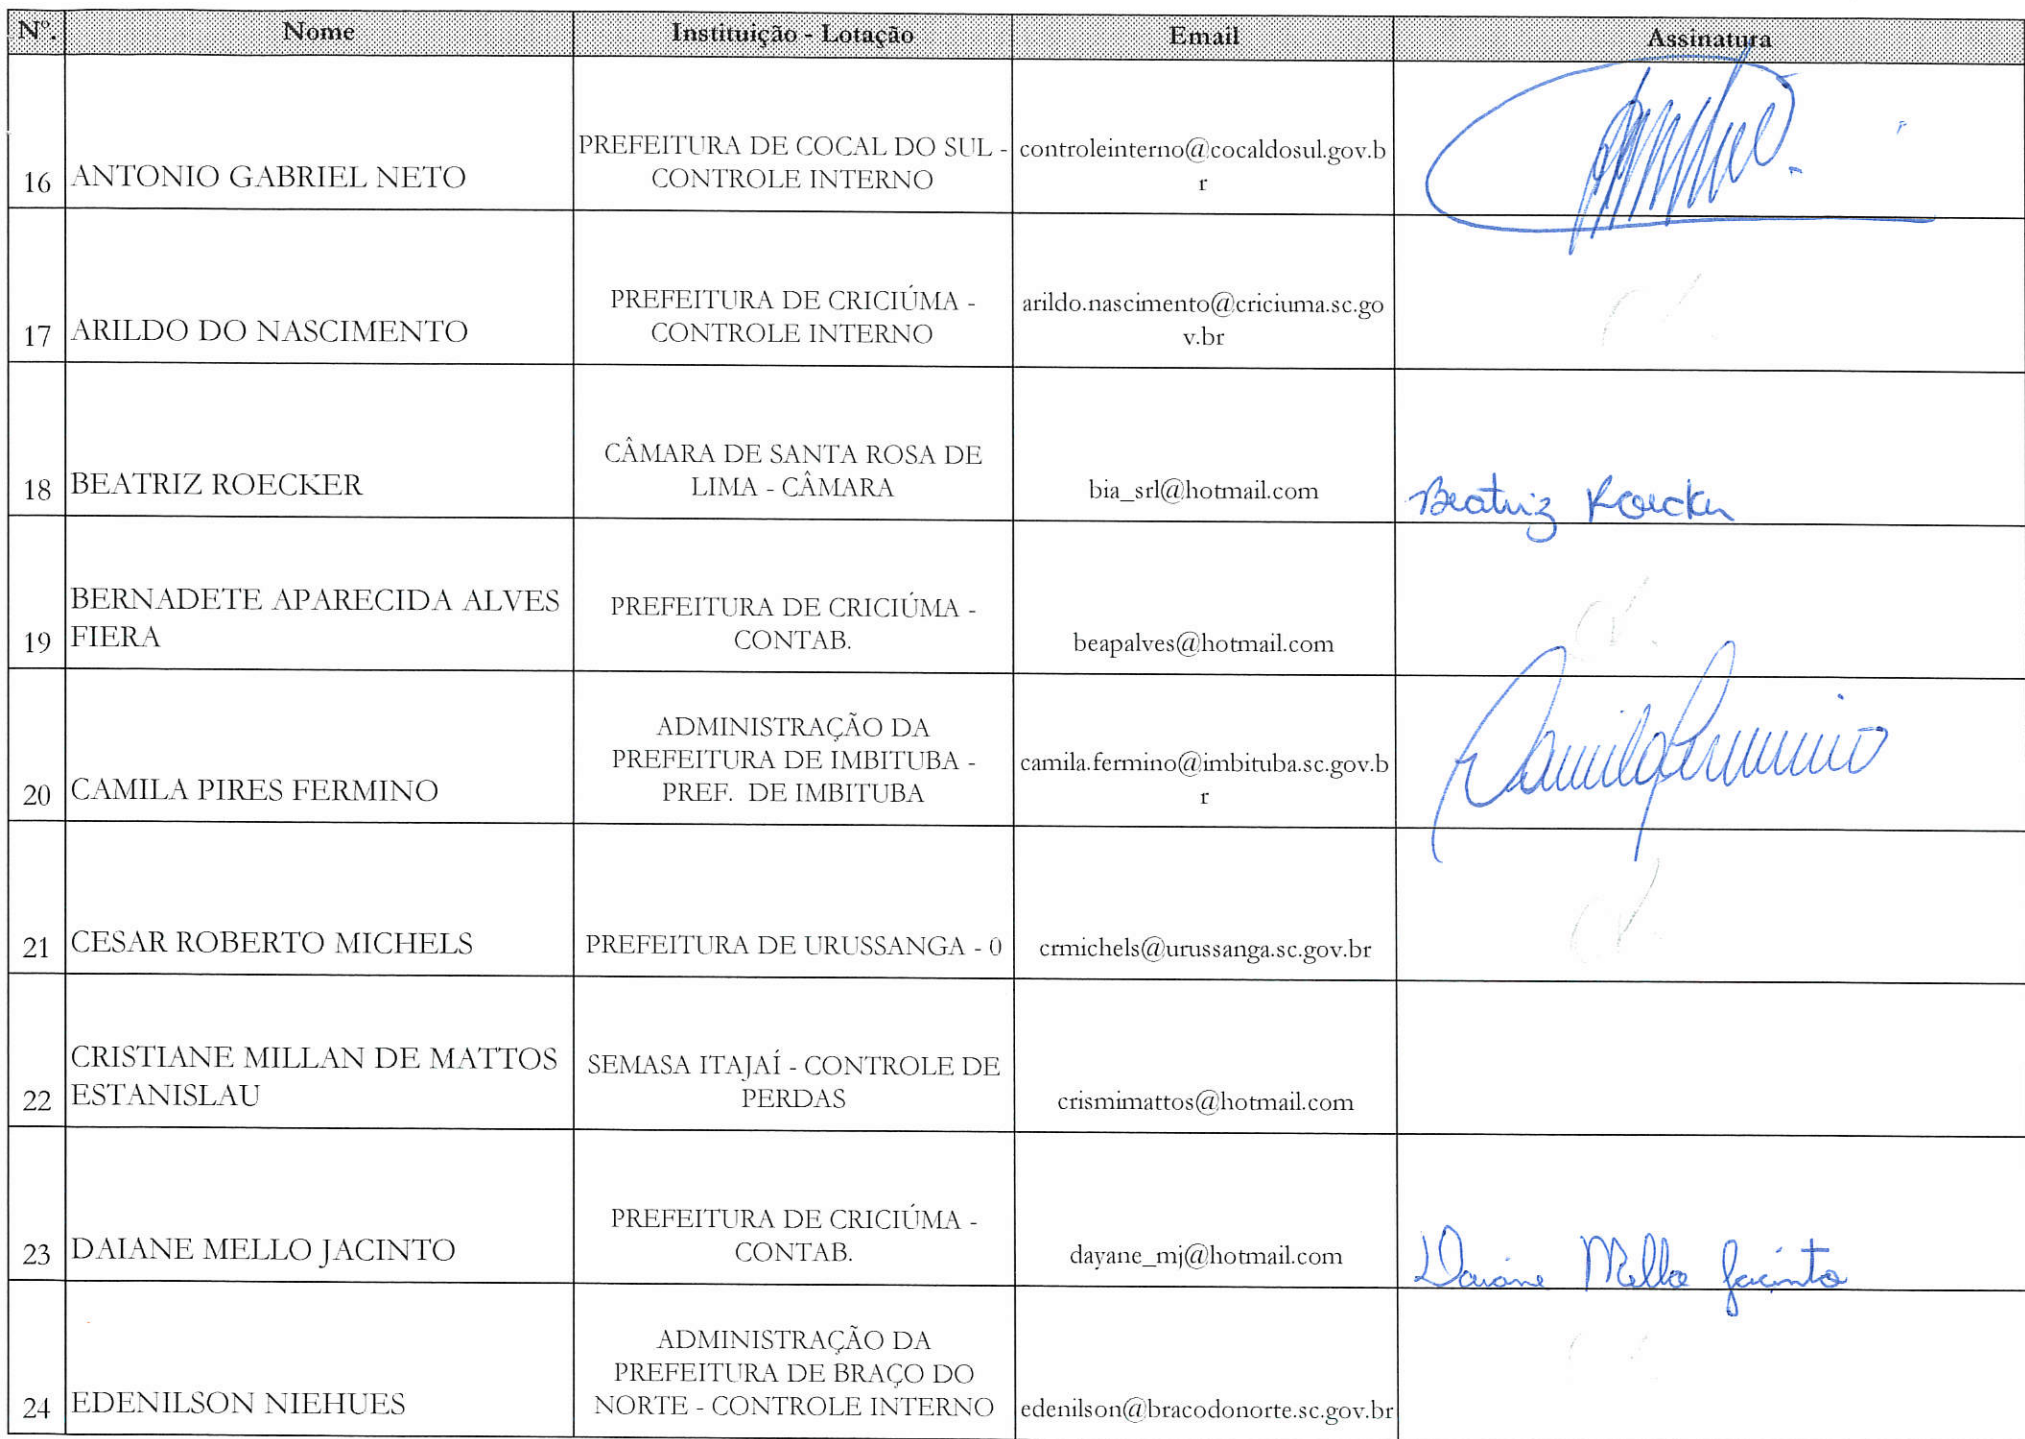 Nº. Nome Instituição - Lotação Email Assinatura
16 ANTONIO GABRIEL NETO
PREFEITURA DE COCAL DO SUL -
CONTROLE INTERNO
controleinterno@cocaldosul.gov.b
r
17 ARILDO DO NASCIMENTO
PREFEITURA DE CRICIÚMA -
CONTROLE INTERNO
arildo.nascimento@criciuma.sc.go
v.br
18 BEATRIZ ROECKER
CÂMARA DE SANTA ROSA DE
LIMA - CÂMARA
bia_srl@hotmail.com
Beatriz Roecker
19
BERNADETE APARECIDA ALVES
FIERA
PREFEITURA DE CRICIÚMA -
CONTAB.
beapalves@hotmail.com
20 CAMILA PIRES FERMINO
ADMINISTRAÇÃO DA
PREFEITURA DE IMBITUBA -
PREF. DE IMBITUBA
camila.fermino@imbituba.sc.gov.b
r
Camila Fermino
21 CESAR ROBERTO MICHELS
PREFEITURA DE URUSSANGA - 0
crmichels@urussanga.sc.gov.br
22
CRISTIANE MILLAN DE MATTOS
ESTANISLAU
SEMASA ITAJAÍ - CONTROLE DE
PERDAS
crismimattos@hotmail.com
23 DAIANE MELLO JACINTO
PREFEITURA DE CRICIÚMA -
CONTAB.
dayane_mj@hotmail.com
Daiane Mello Jacinto
24 EDENILSON NIEHUES
ADMINISTRAÇÃO DA
PREFEITURA DE BRAÇO DO
NORTE - CONTROLE INTERNO
edenilson@bracodonorte.sc.gov.br